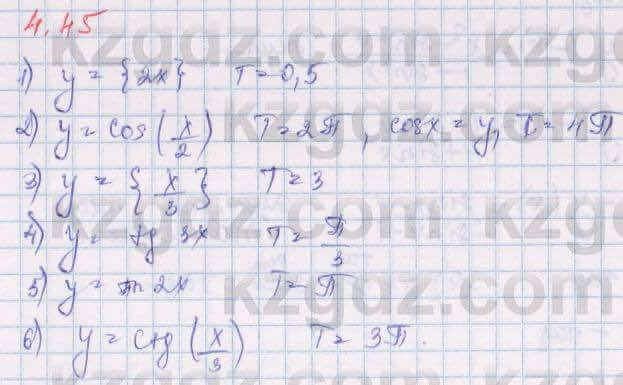 4.45
1) y = {2x} T = 0,5
2) y = cos (x/2) T = 2π, cosx = y, T = 4π
3) y = {x/3} T = 3
4) y = tg 3x T = π/3
5) y = 2x T = π
6) y = ctg (x/3) T = 3π.
kzgdz.com